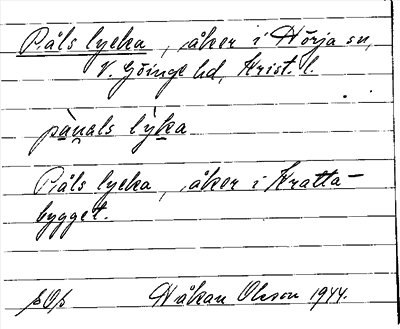 Påls lycka, åker i Nörja sn,
V. Göinge hd, Krist. l.
pànals lỳka
Påls lycka, åker i Kratta-
bygget.
Håkan Olsson 1944.